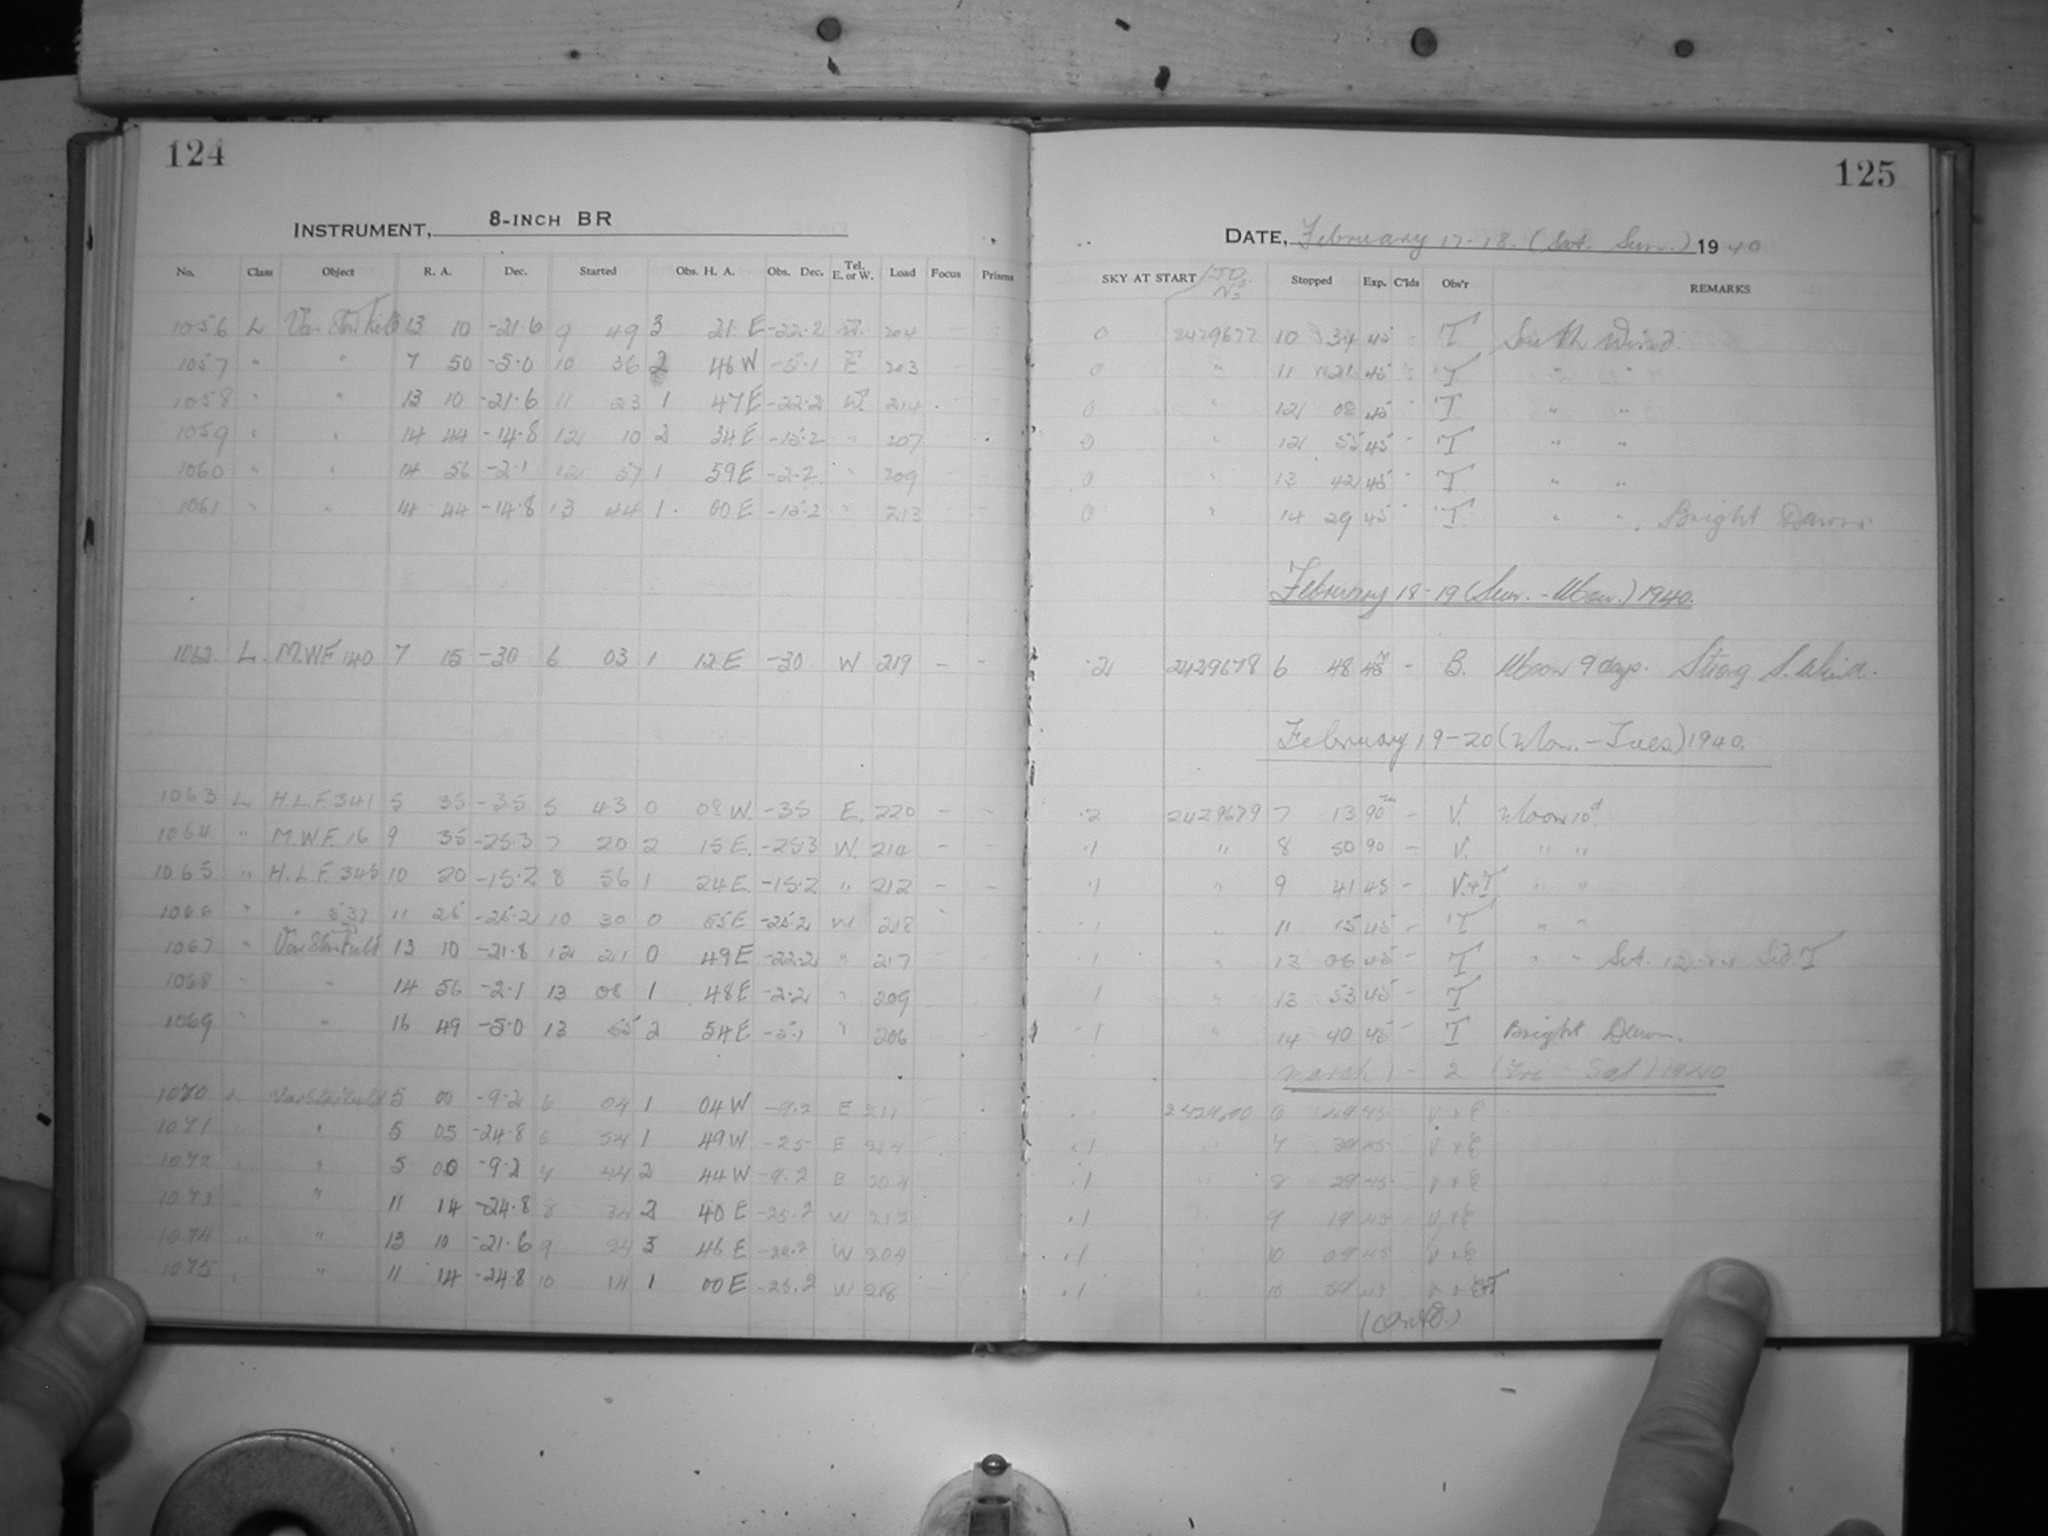 124
INSTRUMENT, 8-INCH BR
No. Class Object R. A. Dec. Started Obs. H. A. Obs. Dec. Tel. E. or W. Load Focus Prisms
1056 L Var. Star Field 13 10 -21.6 9 49 3 21 E -22.2 W. 204
1057 " " 7 50 -5.0 10 36 2 46 W -5.1 E 203
1058 " " 13 10 -21.6 11 23 1 47 E -22.2 W. 214
1059 " " 14 44 -14.8 12 10 2 34 E -15.2 " 207
1060 " " 14 56 -2.1 12 57 1 59 E -2.2 " 209
1061 " " 14 44 -14.8 13 44 1 00 E -15.2 " 213
1062 L. M.W.F. 140 7 15 -30 6 03 1 12 E -30 W 219 - -
1063 L H.L.F. 341 5 35 -35 5 43 0 08 W. -35 E. 220 - -
1064 " M.W.F. 16 9 35 -25.3 7 20 2 15 E. -25.3 W. 214 - -
1065 " H.L.F. 345 10 20 -15.2 8 56 1 24 E. -15.2 " 212 - -
1066 " " 537 11 25 -25.2 10 30 0 55 E -25.2 W 218
1067 " Var Star Field 13 10 -21.8 12 21 0 49 E -22.2 " 217
1068 " " 14 56 -2.1 13 08 1 48 E -2.2 " 209
1069 " " 16 49 -5.0 13 55 2 54 E -5.1 " 206
1070 L Var Star Field 5 00 -9.2 6 04 1 04 W -9.2 E 211
1071 " " 5 05 -24.8 6 54 1 49 W -25 E
1072 " " 5 00 -9.2 7 44 2 44 W -9.2 E 204
1073 " " 11 14 -24.8 8 34 2 40 E -25.2 W 212
1074 " " 13 10 -21.6 9 24 3 46 E -22.2 W 204
1075 " " 11 14 -24.8 10 14 1 00 E -25.2 W 218
125
DATE, February 17-18. (Sat. Sun.) 1940
SKY AT START / J.D. No. Stopped Exp. C'lds Obs'r REMARKS
0 2429677 10 34 45 - T South Wind.
0 " 11 21 45 T " "
0 " 12 08 45 T " "
0 " 12 55 45 - T " "
0 " 13 42 45 - T " "
0 " 14 29 45 - T " ", Bright Dawn
February 18-19 (Sun. - Mon.) 1940.
.2 2429678 6 48 45m - B. Moon 9 days. Strong S. Wind.
February 19-20 (Mon. - Tues) 1940.
.2 2429679 7 13 90m - V. Moon 10d.
.1 " 8 50 90 - V. " "
.1 " 9 41 45 - V.+T " "
.1 " 11 15 45 - T " "
.1 " 13 06 45 - T " " Set. Sid. T
.1 " 13 53 45 - T
.1 " 14 40 45 - T Bright Dawn.
March 1 - 2 (Fri - Sat) 1940
2429690 6 49 45 V + E
.1 " 7 39 45 V + E
.1 " 8 29 45 V + E
.1 " 9 19 45 V + E
.1 " 10 09 45 V + E
.1 " 10 59 45 V + E+T
(contd.)